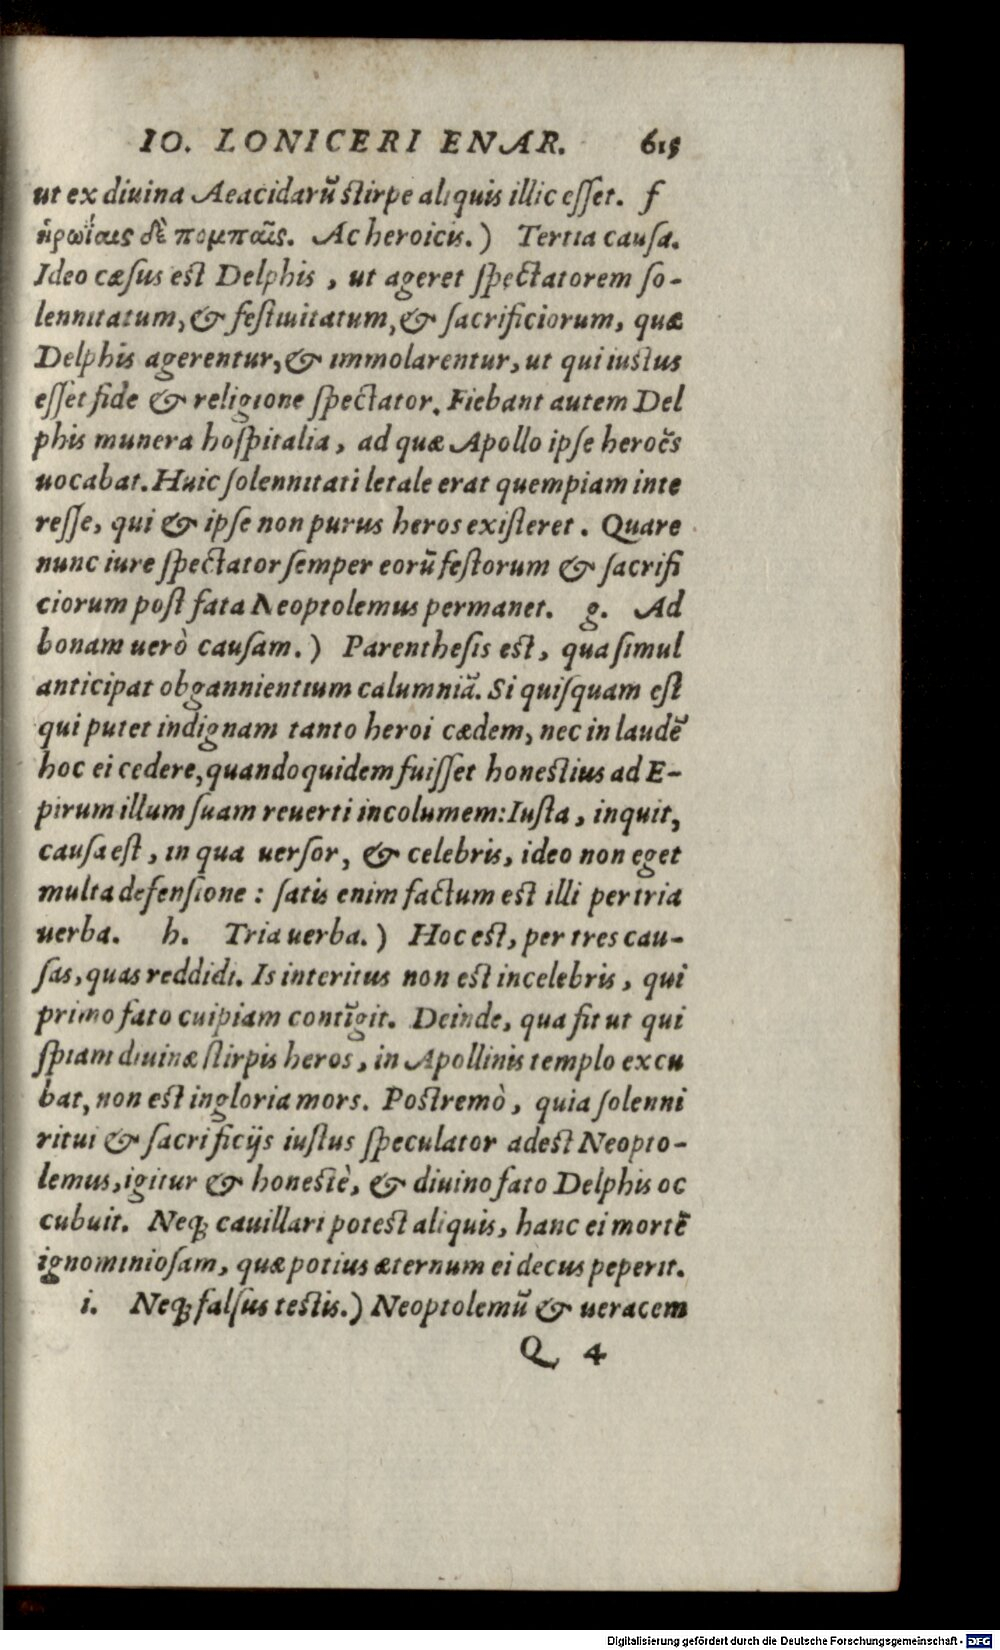 IO. LONICERI ENAR. 615
ut ex diuina Aeacidarū stirpe aliquis illic esset. f
ἡρωΐαις δὲ πομπαῖς. Ac heroicis.) Tertia causa.
Ideo cæsus est Delphis, ut ageret spectatorem so-
lennitatum, & festiuitatum, & sacrificiorum, quæ
Delphis agerentur, & immolarentur, ut qui iustus
esset fide & religione spectator. Fiebant autem Del
phis munera hospitalia, ad quæ Apollo ipse heroẽs
uocabat. Huic solennitati letale erat quempiam inte
resse, qui & ipse non purus heros existeret. Quare
nunc iure spectator semper eorũ festorum & sacrifi
ciorum post fata Neoptolemus permanet. g. Ad
bonam uerò causam.) Parenthesis est, qua simul
anticipat obgannientium calumniã. Si quisquam est
qui putet indignam tanto heroi cædem, nec in laudẽ
hoc ei cedere, quandoquidem fuisset honestius ad E-
pirum illum suam reuerti incolumem: Iusta, inquit,
causa est, in qua uersor, & celebris, ideo non eget
multa defensione: satis enim factum est illi per tria
uerba. h. Tria uerba.) Hoc est, per tres cau-
sas, quas reddidi. Is interitus non est incelebris, qui
primo fato cuipiam contĩgit. Deinde, qua fit ut qui
spiam diuinæ stirpis heros, in Apollinis templo excu
bat, non est ingloria mors. Postremò, quia solenni
ritui & sacrificijs iustus speculator adest Neopto-
lemus, igitur & honestè, & diuino fato Delphis oc
cubuit. Neq; cauillari potest aliquis, hanc ei mortẽ
ignominiosam, quæ potius æternum ei decus peperit.
i. Neq; falsus testis.) Neoptolemũ & ueracem
Q 4
Digitalisierung gefördert durch die Deutsche Forschungsgemeinschaft - DFG